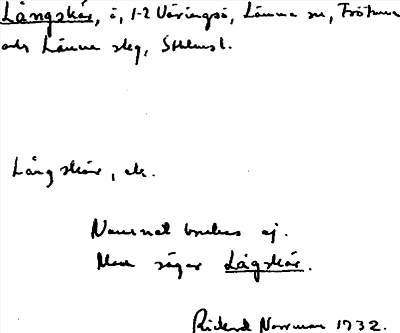 Långskär, ö, 1-2 Väringsö, Länna sn, Frötuna
och Länna skg, Sthlmsl.
Långskär, ek.
Namnet brukas ej.
Man säger Lågskär.
Rickard Norrman 1932.